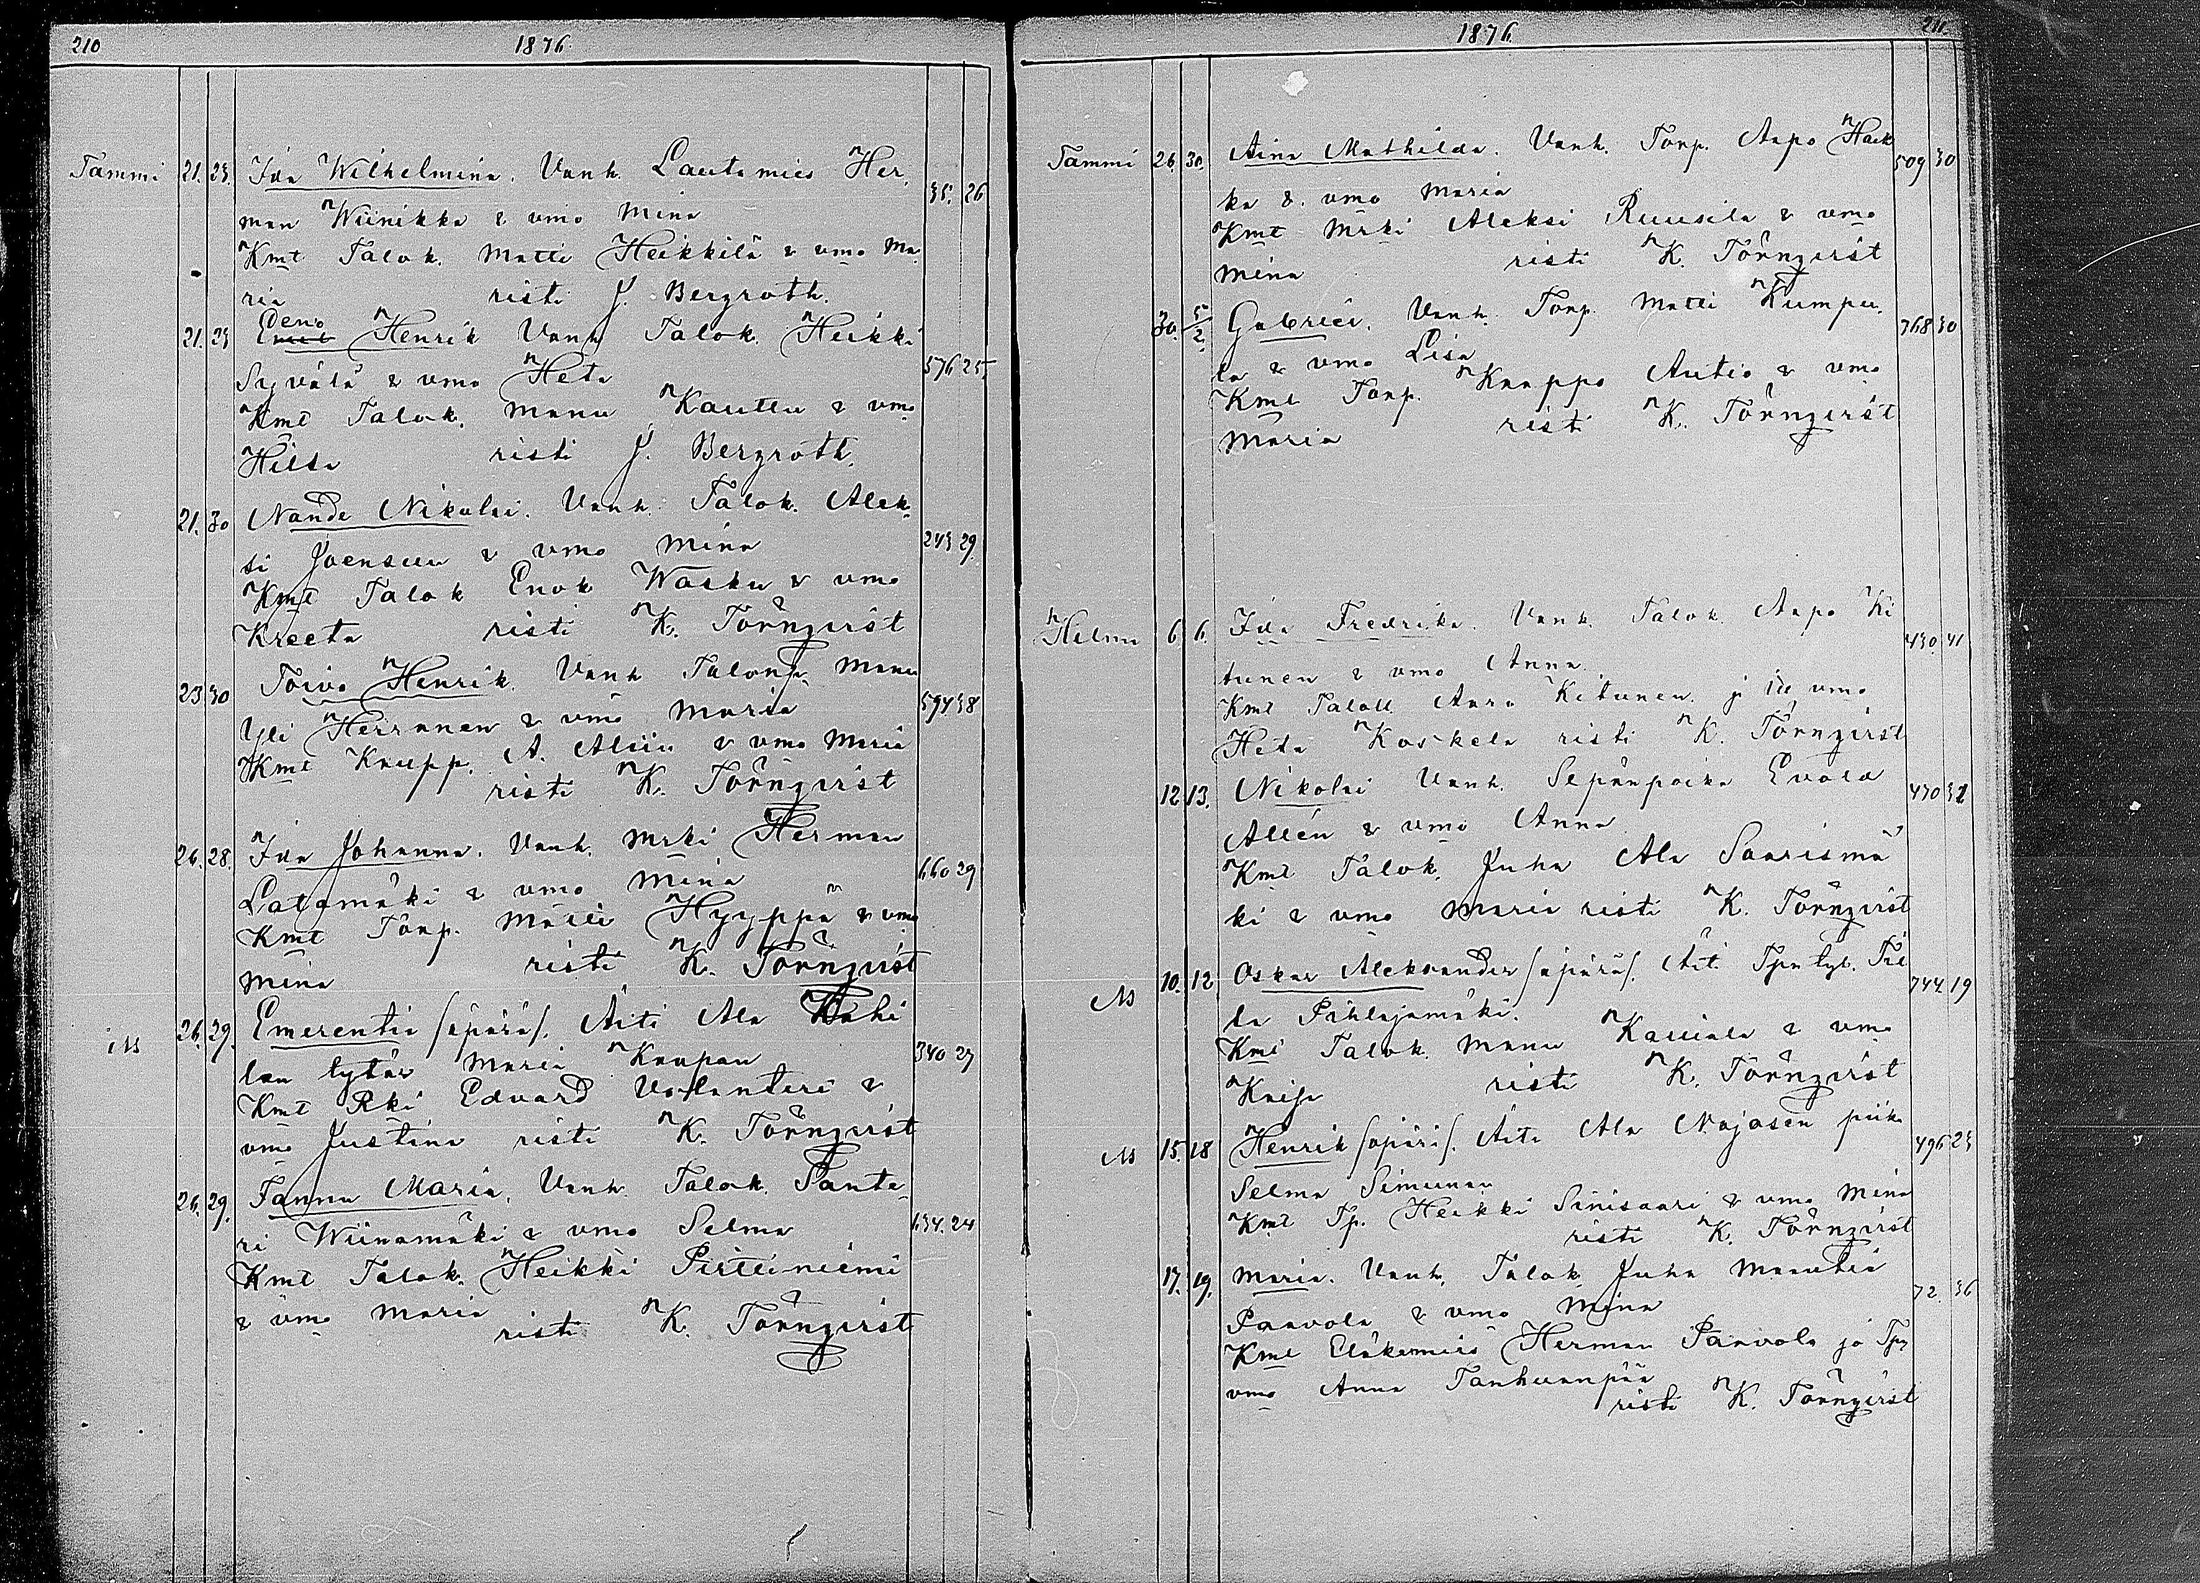 210
1876
Tammi 21. 23. Ida Wilhelmina. Vanh. Lautamies Her-
man Wiinikka & vmo Mina 26
Kmt Talok. Matti Heikkilä & vmo Ma-
ria risti J. Bergroth.
21. 23 Eeno Henrik Vanh Talok. Heikki
Syvälä & vmo Heta 576 25.
Kmt Talok. Manu Kauttu & vmo
Hilta risti J. Bergroth.
21. 30 Nande Nikolai. Vanh. Talok. Alek-
si Joensuu & vmo Mina 243 29.
Kmt Talok Enok Wasku & vmo
Kreeta risti K. Törnqvist
23 30 Toivo Henrik. Vanh Talonp. Manu
Yli Heiranen & vmo Maria 594 38
Kmt Kaupp. A. & vmo Maria
risti K. Törnqvist
26. 28. Ida Johanna. Vanh. Mrki Herman
Latamäki & vmo Mina 660 29
Kmt Torp. Matti Hyyppä & vmo
Mina risti K. Törnqvist
26. 29. Emerentia /äpärä/. Äiti Ala
lan tytär Maria Kaapau 340 27
Kmt Rki Edvard Vorlanteri &
vmo Justina risti K. Törnqvist
26. 29. Fanna Maria. Vanh. Talok. Sante-
ri Wiinamäki & vmo Selma 634. 24
Kmt Talok. Heikki Pirttiniemi
& vmo Maria
risti K. Törnqvist
1876.
211
Tammi 26. 30. Aina Mathilda. Vanh. Torp. Aapo Hack
ka & vmo Maria 509 30
Kmt Mrki Aleksi Ruusila & vmo
Mina risti K. Törnqvist
30. 5/2. Gabriel. Vanh. Torp. Matti Kumpu-
la & vmo Lisa 768 30
Kmt Torp. Knappo Autio & vmo
Maria risti K. Törnqvist
Helmi 6 6. Ida Fredrika. Vanh. Talok. Aapo Ki
tunen & vmo Anna 430 41
Kmt Talok Kitunen ja vmo
Heta Koskela risti K. Törnqvist
12 13. Nikolai Vanh. Sepänpoika Evald
Allén & vmo Anna 430 32
Kmt Talok. Juha Ala Saarismä
ki & vmo Maria risti K. Törnqvist
10. 12 Oskar Aleksander /äpärä/. Äiti Tpn tyt. Tii
la Pihlajamäki. 744 19
Kmt Talok. Manu Kauiala & vmo
Kaisa risti K. Törnqvist
15. 18 Henrik /äpärä/. Äiti Ala Nojosen piika
Selma Simunan 496 23
Kmt Tp. Heikki Sinisaari & vmo Mina
risti K. Törnqvist
17. 19. Maria. Vanh. Talok Juha Mauntia
Panvola & vmo Mina 72 36
Kmt Eläkemies Herman Panvola ja Tpn
vmo Anna Tanhuanpää
risti K. Törnqvist